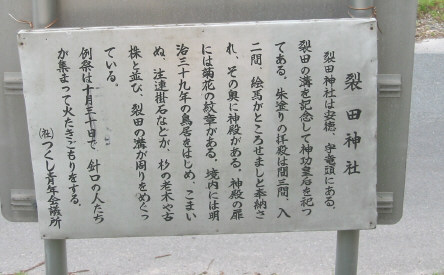 裂田神社
裂田神社は安徳、字竜頭にある。
裂田の溝を記念して神功皇后を祀っ
てある。朱塗りの拝殿は間三間、入
二間、絵馬がところせましと奉納さ
れ、その奥に神殿がある。神殿の扉
には菊花の紋章がある。境内には明
治三十九年の鳥居をはじめ、こまい
ぬ、注連掛石などが、杉の老木や古
株と並び、裂田の溝が周りをめぐっ
ている。
例祭は十月三十日で、針口の人たち
が集まって火たきごもりをする。
㈳つくし青年会議所